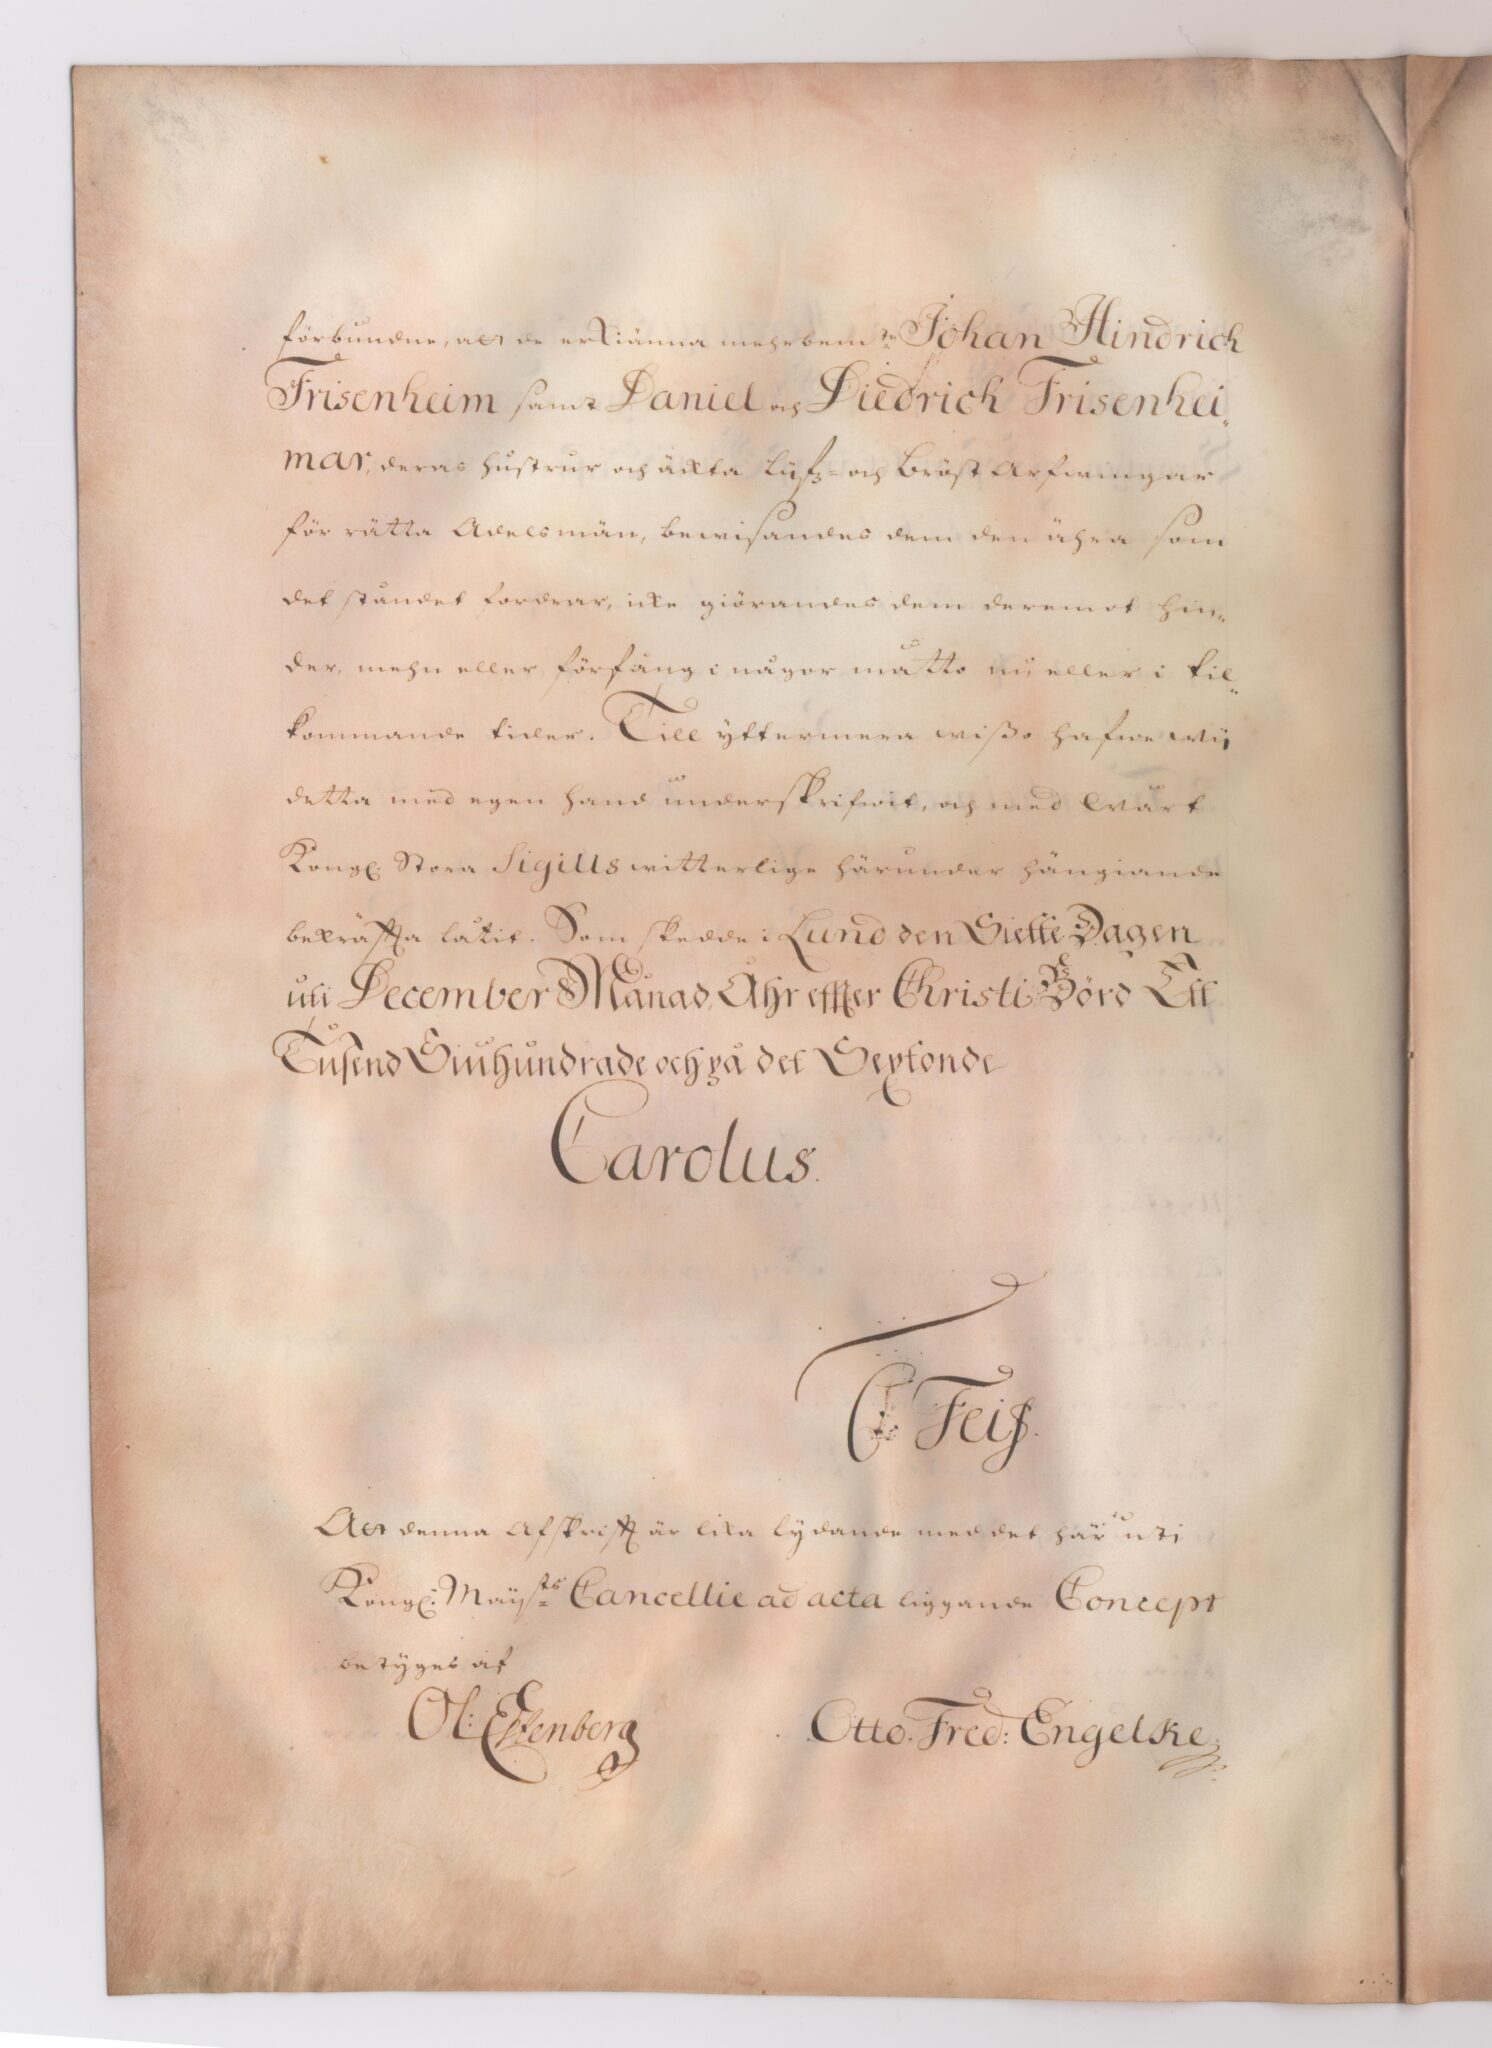 förbundne, att de erkiänna mehrbem:te Johan Hindrich
Frisenheim samt Daniel och Diedrich Frisenhei-
mar, deras hustrur och äckta Lijfz- och Bröst Arfwingar
för rätta Adelsmän, bewisandes dem den ähra som
det ståndet fordrar, icke giörandes dem deremot hin-
der, mehn eller förfång i någor måtto nu eller i til-
kommande tider. Till yttermera wißo hafwe wij
detta med egen hand underskrifwit, och med Wårt
Kongl. Stora Sigills witterlige härunder hängiande
bekräffta latit. Som skedde i Lund den Siette Dagen
uti December Månad, Åhr effter Christi Börd Ett
Tusend Siuhundrade och på det Sextonde
Carolus.
C. Feif.
Att denna Afskrifft är lika lydande med det här uti
Kongl. Maij:ts Cancellie ad acta liggande Concept
betyges af
Ol: Estenberg
Otto. Fred: Engelske